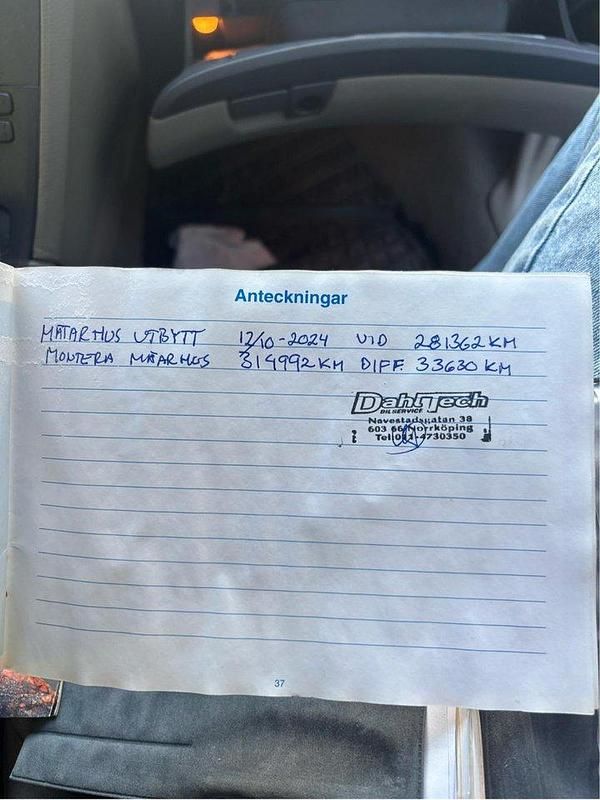 Anteckningar
MÄTARHUS UTBYTT 12/10-2024 VID 281362KM
MONTERA MÄTARHUS 314992KM DIFF. 33630 KM
DahlTech
BILSERVICE
Navestadsgatan 38
603 66 Norrköping
Tel:011-4730350
37